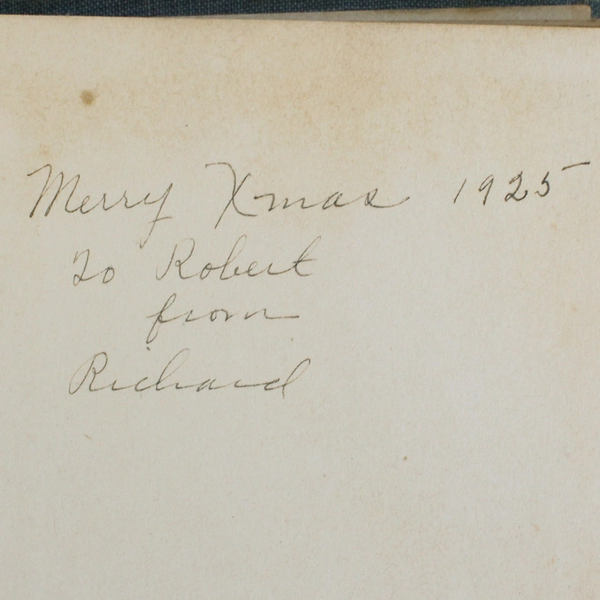 Merry Xmas 1925
To Robert
from
Richard